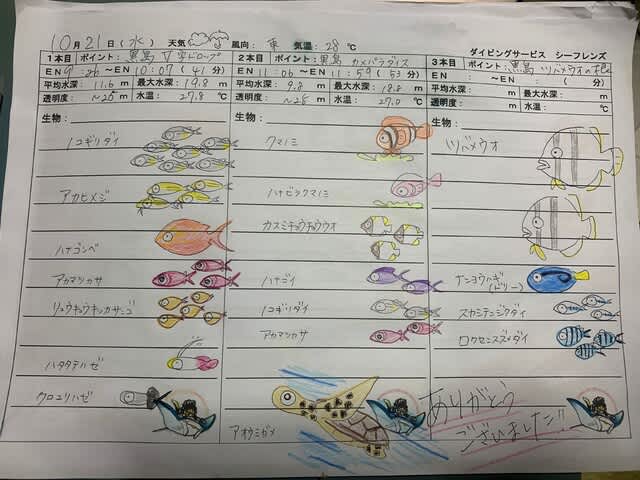 10月21日(水) 天気 風向: 東 気温: 28℃
ダイビングサービス シーフレンズ
1本目 ポイント: 黒島
EN 9:26 ～EN 10:07 (41分)
平均水深: 11.6m 最大水深: 19.8m
透明度: ～25m 水温: 27.8℃
生物:
ノコギリダイ
アカヒメジ
ハナゴンベ
アカマツカサ
リュウキュウキッカサンゴ
ハタタテハゼ
クロユリハゼ
2本目 ポイント: 黒島 カメパラダイス
EN 11:06 ～EN 11:59 (53分)
平均水深: 9.8m 最大水深: 18.8m
透明度: ～25m 水温: 27.0℃
生物:
クマノミ
ハナビラクマノミ
カスミチョウチョウウオ
ハナゴイ
ノコギリダイ
アカマツカサ
アオウミガメ
3本目 ポイント: 黒島 ツバメウオの根
EN : ～EN : ( 分)
平均水深: m 最大水深: m
透明度: m 水温: ℃
生物:
ツバメウオ
ナンヨウハギ
(ドリー)
スカシテンジクダイ
ロクセンスズメダイ
ありがとう
ございました!!